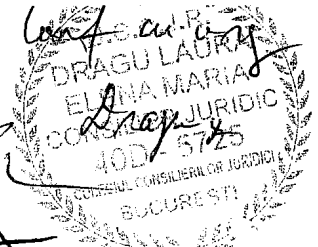 DRAGU LAURA
ELENA MARIA
CONSILIER JURIDIC
40D - 5725
Dragu
COLEGIUL CONSILIERILOR JURIDICI
BUCURESTI